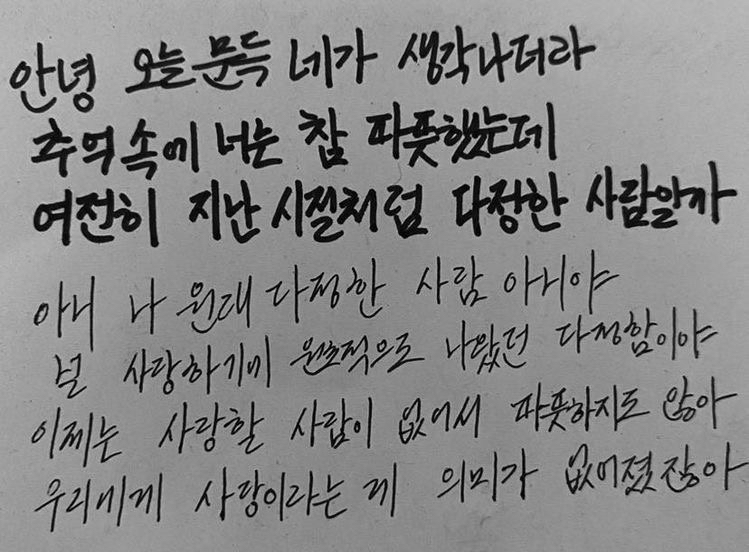 안녕 오늘 문득 네가 생각나더라
추억속에 너는 참 따뜻했는데
여전히 지난 시절처럼 다정한 사람일까
아니 나 원래 다정한 사람 아니야
널 사랑하기에 원초적으로 나왔던 다정함이야
이제는 사랑할 사람이 없어서 따뜻하지도 않아
우리에게 사랑이라는 게 의미가 없어졌잖아